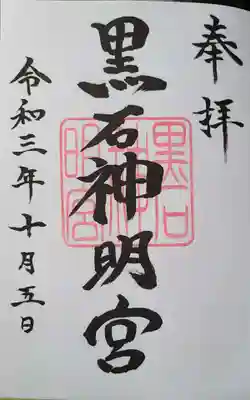 奉拝
黒石神明宮
黒石
神
明宮
令和三年十月五日